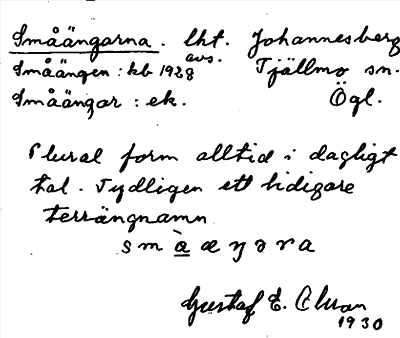 Småängarna. lht. Johannesberg
avs.
Småängen: kb 1928 Tjällmo sn.
Småängar: ek. Ögl.
Plural form alltid i dagligt
tal. Tydligen ett tidigare
terrängnamn
smàæŋəra
Gustaf E.
1930